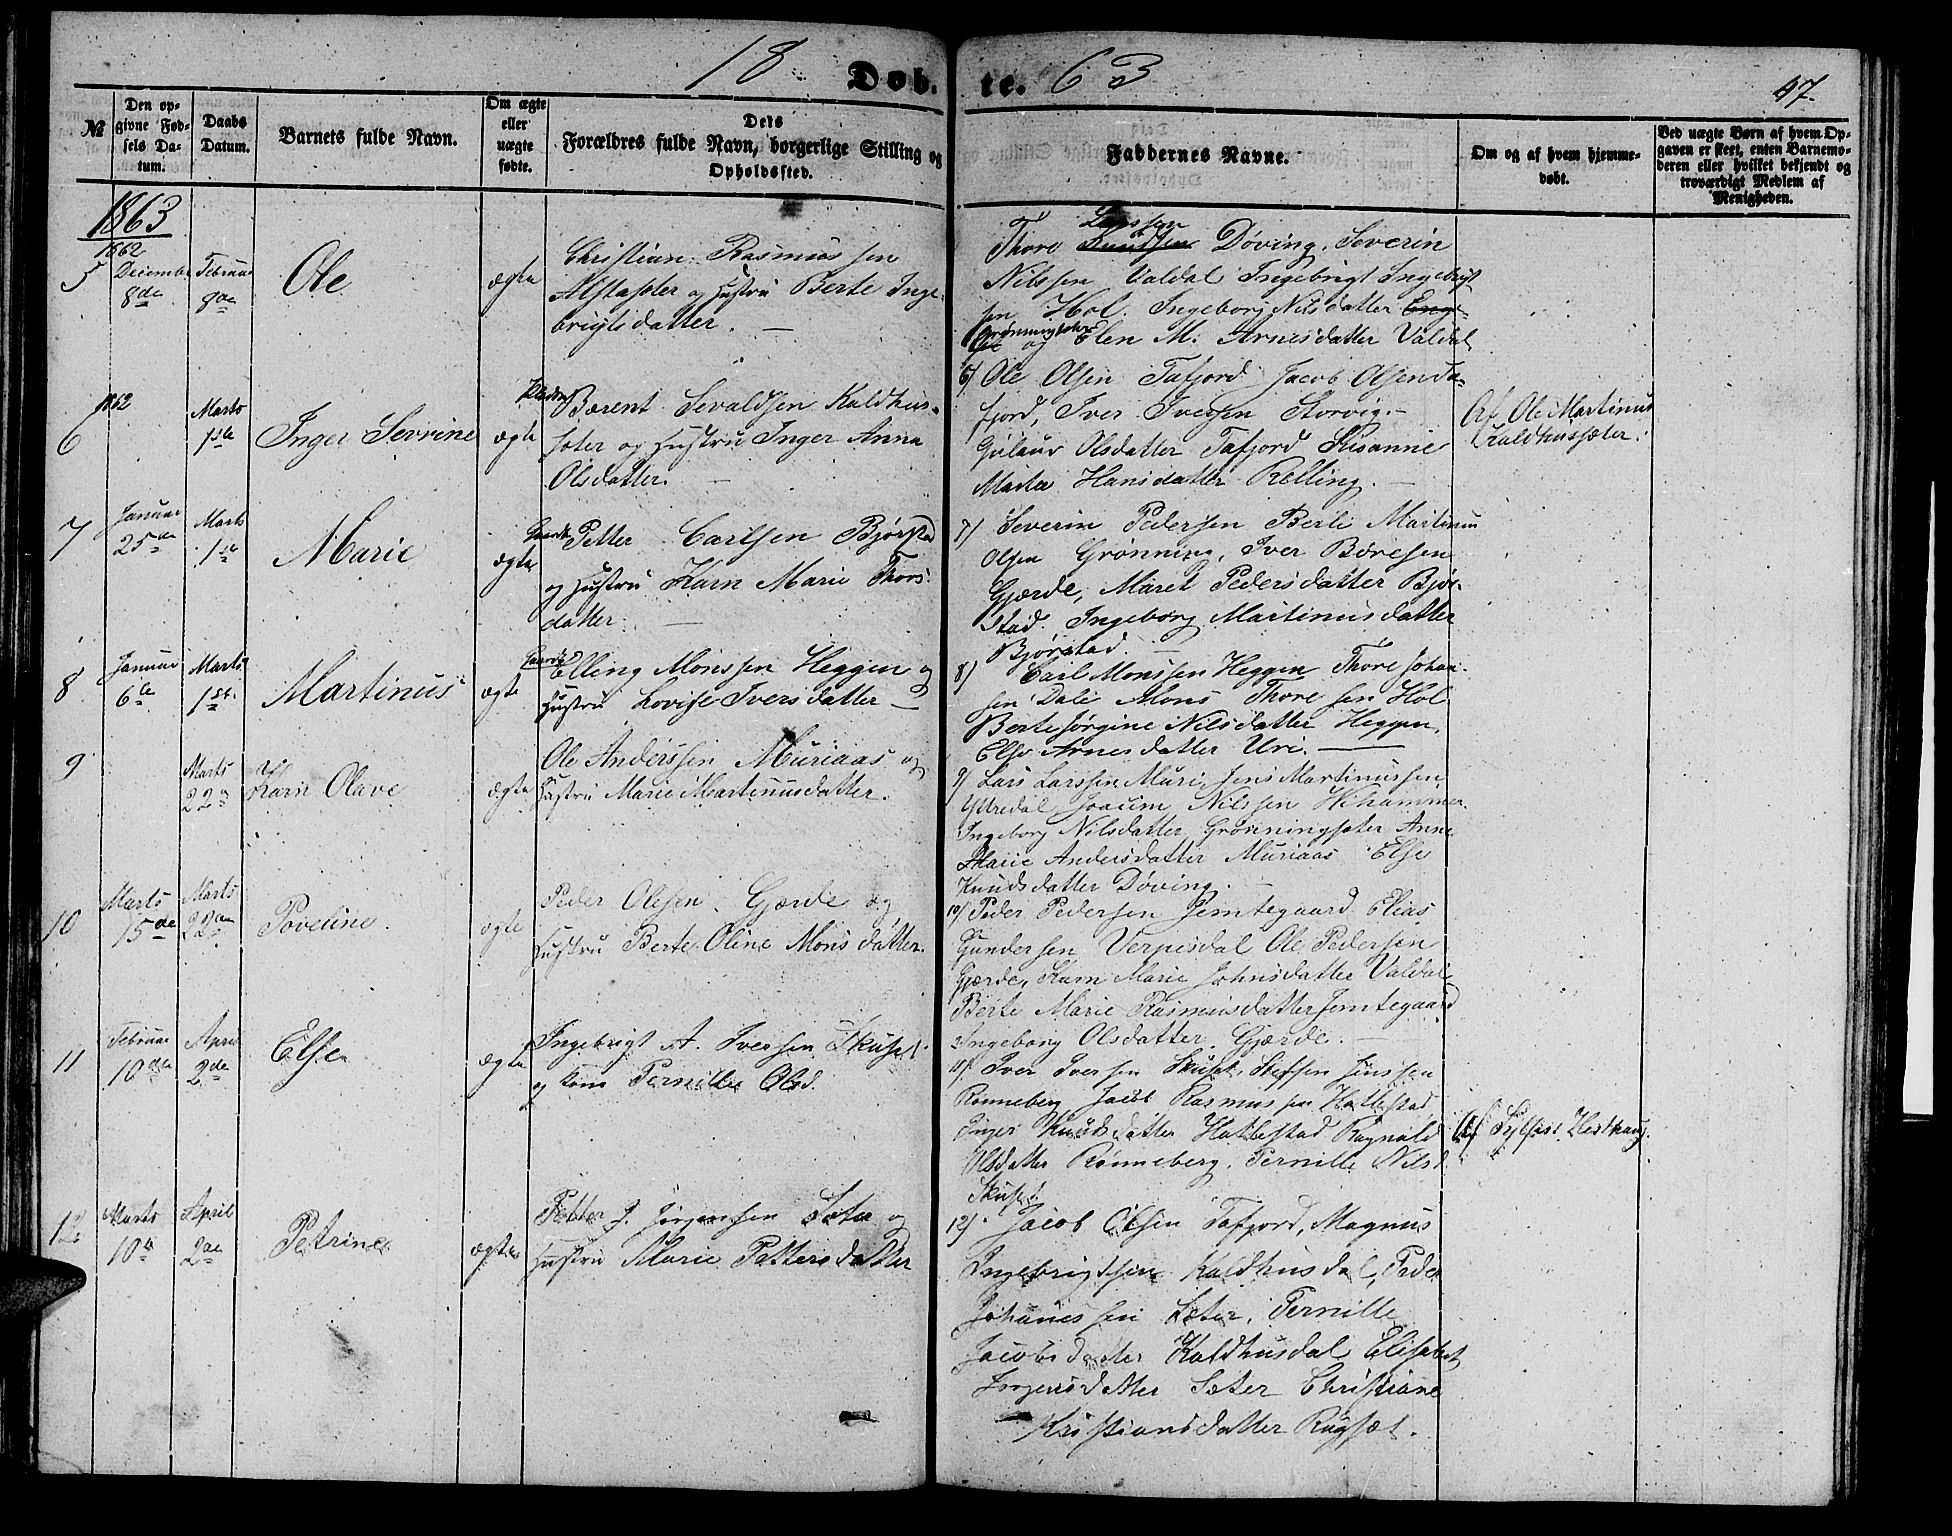 18 Døb- te. 63
47.
№
Den op-
givne Fød-
sels Da-
tum.
Daabs
Datum.
Barnets fulde Navn.
Om ægte
eller
uægte
fødte.
Dets
Forældres fulde Navn, borgerlige Stilling og
Opholdssted.
Faddernes Navne.
Om og af hvem hjemme-
døbt.
Ved uægte Børn af hvem Op-
gaven er skeet, enten Barnemo-
deren eller hvilket bekjendt og
troværdigt Medlem af
Menigheden.
1863
5
1862
December
8de
Februar
8de
Ole
ægte
Christian Rasmussen
Alstadsæter og Hustru Berte Inge-
brigtsdatter. —
Larssen
Thore Knudsen Døving, Severin
Nilssen Valdal Ingebrigt Ingebrigt
sen Hol. Ingeborg Nilsdatter
Grønningsæter
og Elen M. Arnesdatter Valdal
6
1862
Marts
1ste
Inger Sevrine
ægte
Bærent Sevaldsen Kaldhus-
sæter og Hustru Inger Anna
Olsdatter. —
6) Ole Olsen Tafjord Jacob Olsen Ta-
fjord, Iver Iversen Storvig.-
Olsdatter Tafjord Susanne
Marta Hansdatter Relling. —
Af Ole Martinus
Kaldhussæter.
7
Januar
25de
Marts
1ste
Marie
ægte
Gaardb
Petter Carlsen Bjørstad
og Hustru Karn Marie Thors-
datter.
7) Severin Pedersen Berli Martinus
Olsen Grønning, Iver Baresen
Gjærde, Maret Pedersdatter Bjør-
stad. Ingeborg Martinusdatter
Bjørstad. —
8
Januar
6te
Marts
1ste
Martinus
ægte
Gaardb
Elling Monssen Heggen og
Hustru Lovise Iversdatter —
8) Carl Monssen Heggen Thore Johan-
sen Dale Mons Thoresen Hol
Berte Jørgine Nilsdatter Heggen.
Else Arnesdatter Uri. —
9
Marts
22
Karn Olave
ægte
Ole Anderssen Muriaas og
Hustru Marie Martinusdatter.
9) Lars Larssen Muri, Jens Martinussen
Yttredal Joacim Nilssen
Ingeborg Nilsdatter Grønningsæter Anne
Marie Andersdatter Muriaas Else
Knudsdatter Døving. —
10
Marts
15de
Marts
22de
Poveline.
ægte
Peder Olesen Gjærde og
Hustru Berte Oline Monsdatter.
10) Peder Pedersen Jemtegaard Elias
Gundersen Verpesdal Ole Pedersen
Gjærde, Karn Marie Johnsdatter Valdal
Berte Marie Rasmusdatter Jemtegaard
Ingeborg Olsdatter Gjærde. —
11
Februar
10de
April
2de
Else
ægte
Ingebrigt A. Iversen Skuset
og Kone Pernille Olsd.
11) Iver Iversen Skuset, Steffen Jenssen
Rønneberg Jacob Rasmussen Hatlestad
Inger Knudsdatter Hatlestad Ragnild
Olsdatter Rønneberg, Pernille Nilsd
Skuset.
Af Sylfest
12
Marts
10de
April
2de
Petrine
ægte
Petter J. Jørgenssen Sæter og
Hustru Marie Pettersdatter
12) Jacob Olsen Tafjord, Magnus
Ingebrigtsen Kaldhusdal, Peder
Johannessen Sæter, Pernille
Jacobsdatter Kaldhusdal Elisabet
Jørgensdatter Sæter Christiane
Kristiansdatter Rugsæt.